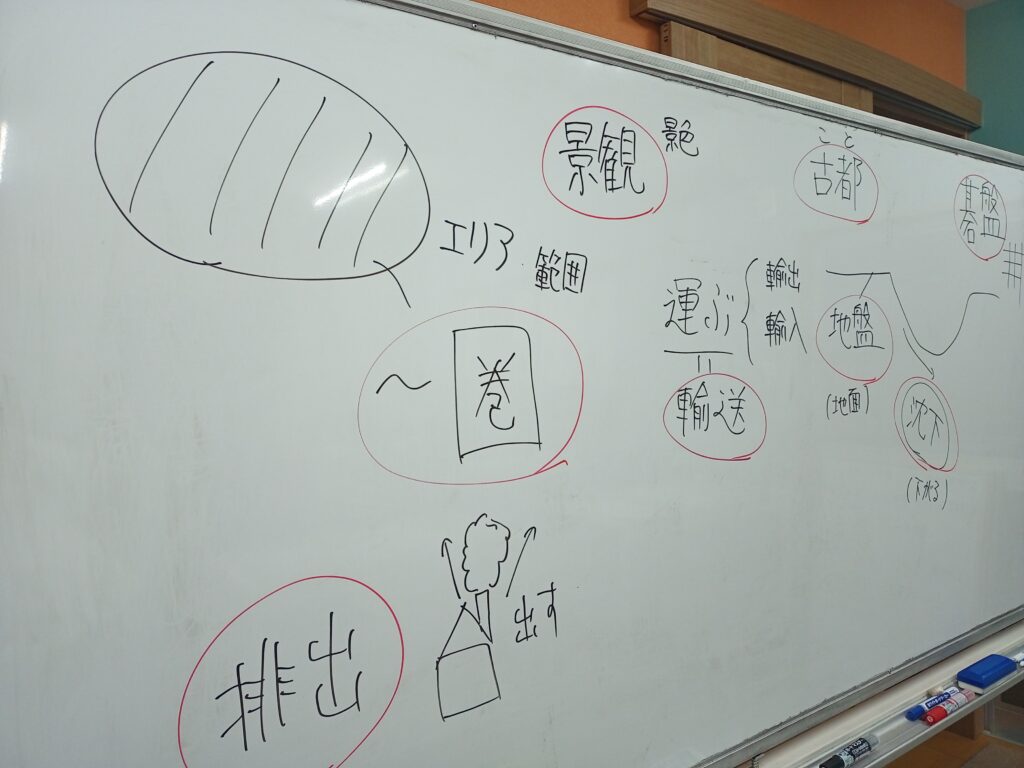 景観 景色
こと
古都
碁盤
エリア 範囲
運ぶ
輸出
輸入
輸送
地盤
(地面)
沈下
(下がる)
〜圏
排出
出す